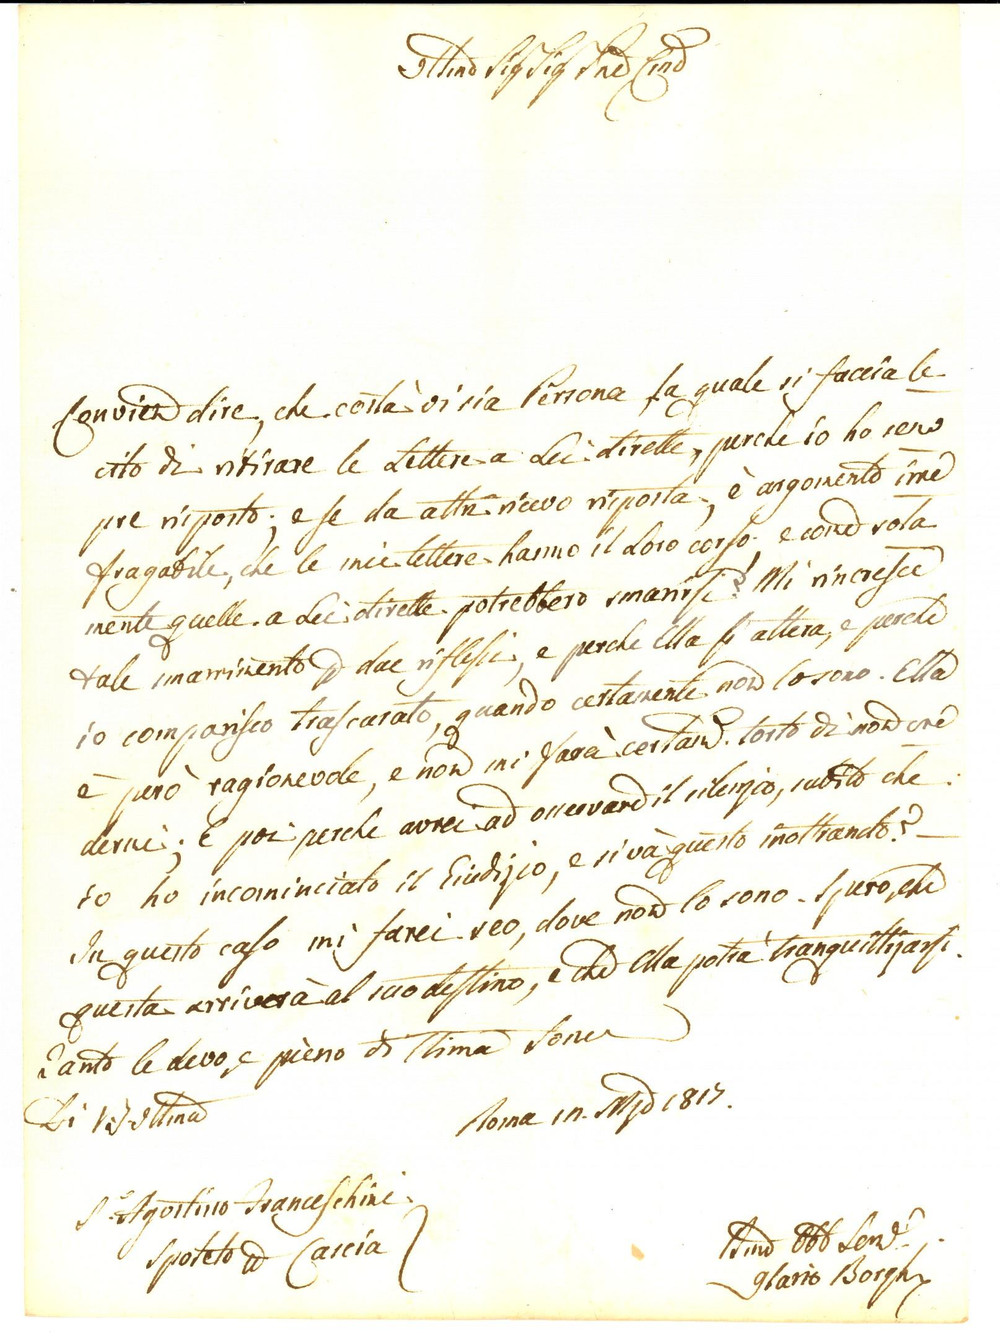 Illmo Sig Sig Pne Cmo
Convien dire, che costà vi sia Persona la quale si faccia le
cito di ritirare le Lettere a Lei dirette, perche io ho sem
pre risposto; e se da altri ricevo risposta, è argomento irre
fragabile, che le mie lettere hanno il Loro corso. e come sola
mente quelle a Lei dirette potrebbero smarrirsi? Mi rincresce
tale smarrimento p due riflessi, e perche Ella si altera, e perche
io comparisco trascurato, quando certamente non lo sono. Ella
è però ragionevole, e non mi farà certam. torto di non cre
dermi; E poi perche avrei ad osservare il silenzio, subito che
io ho incominciato il Giudizio, e si và questo inoltrando?
In questo caso mi farei reo, dove non lo sono. Spero, che
questa arriverà al suo destino, e che Ella potrà tranquillizzarsi.
Tanto le devo, e pieno di stima sono
Di V.S. Illma
Roma 10. Mgo 1817.
Sr Agostino Franceschini
Spoleto p Cascia
Dmo Obb Serv.
Ilario Borghi